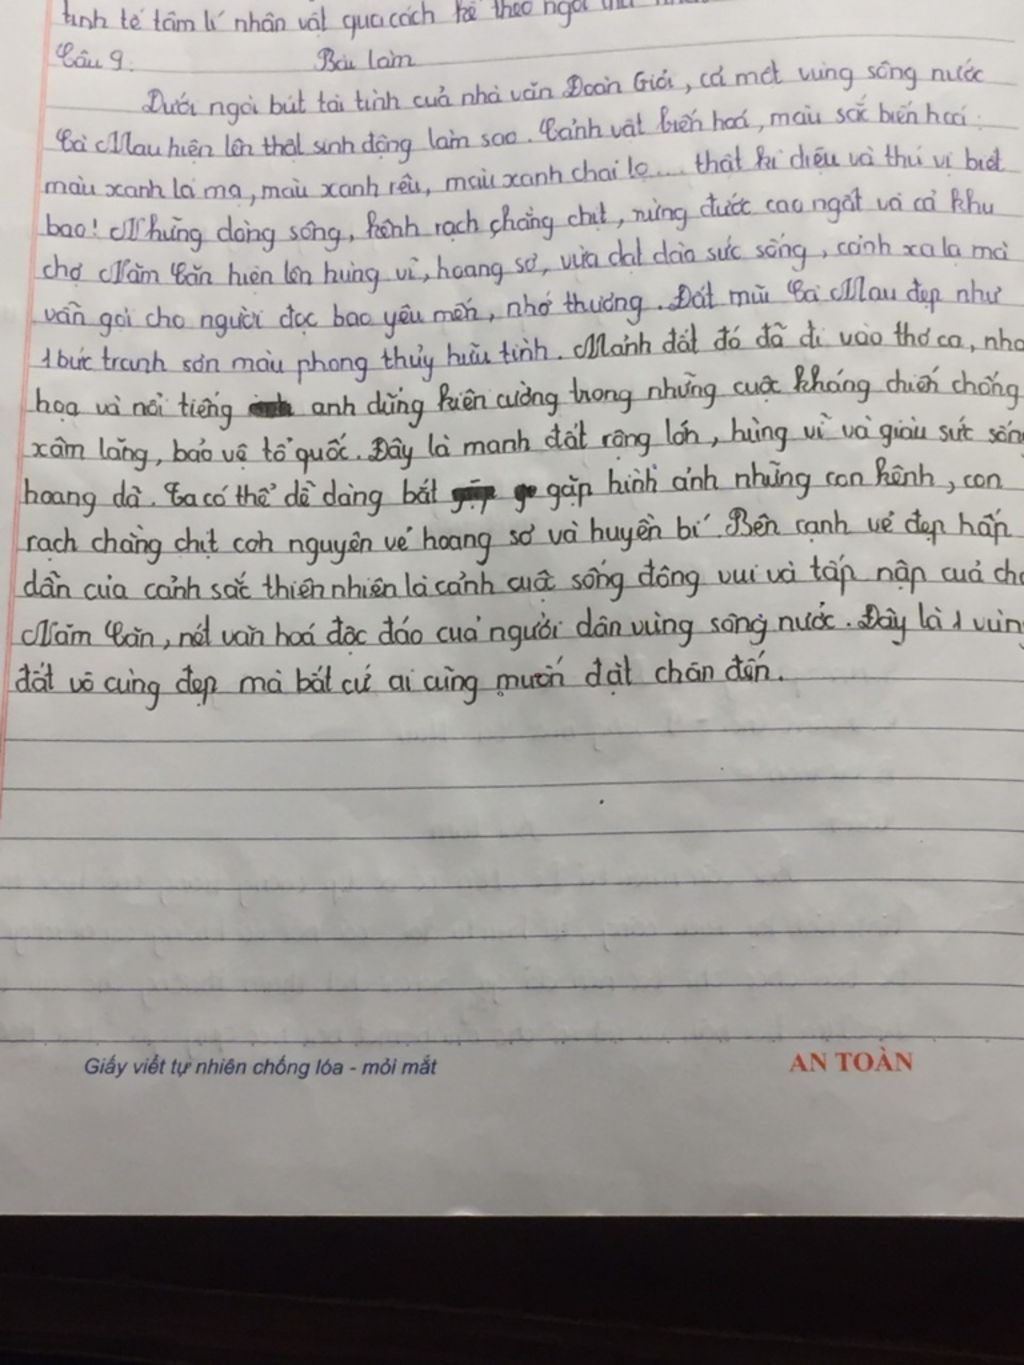 tinh tế tâm lí nhân vật qua cách kể theo ngôi thứ
Câu 9. Bài làm
Dưới ngòi bút tài tình của nhà văn Đoàn Giỏi, cả một vùng sông nước
Cà Mau hiện lên thật sinh động làm sao. Cảnh vật biến hoá, màu sắc biến hoá:
màu xanh lá mạ, màu xanh rêu, màu xanh chai lọ.... thật kì diệu và thú vị biết
bao! Những dòng sông, kênh rạch chằng chịt, rừng đước cao ngất và cả khu
chợ Năm Căn hiện lên hùng vĩ, hoang sơ, vừa dạt dào sức sống, cảnh xa lạ mà
vẫn gợi cho người đọc bao yêu mến, nhớ thương. Đất mũi Cà Mau đẹp như
1 bức tranh sơn màu phong thủy hữu tình. Mảnh đất đó đã đi vào thơ ca, nhạ
họa và nổi tiếng anh dũng kiên cường trong những cuộc kháng chiến chống
xâm lăng, bảo vệ tổ quốc. Đây là mảnh đất rộng lớn, hùng vĩ và giàu sức sốn
hoang dã. Ta có thể dễ dàng bắt gặp hình ảnh những con kênh, con
rạch chằng chịt còn nguyên vẻ hoang sơ và huyền bí. Bên cạnh vẻ đẹp hấp
dẫn của cảnh sắc thiên nhiên là cảnh cuộc sống đông vui và tấp nập của chợ
Năm Căn, nét văn hoá độc đáo của người dân vùng sông nước. Đây là 1 vùn
đất vô cùng đẹp mà bất cứ ai cũng muốn đặt chân đến.
Giấy viết tự nhiên chống lóa - mỏi mắt AN TOÀN